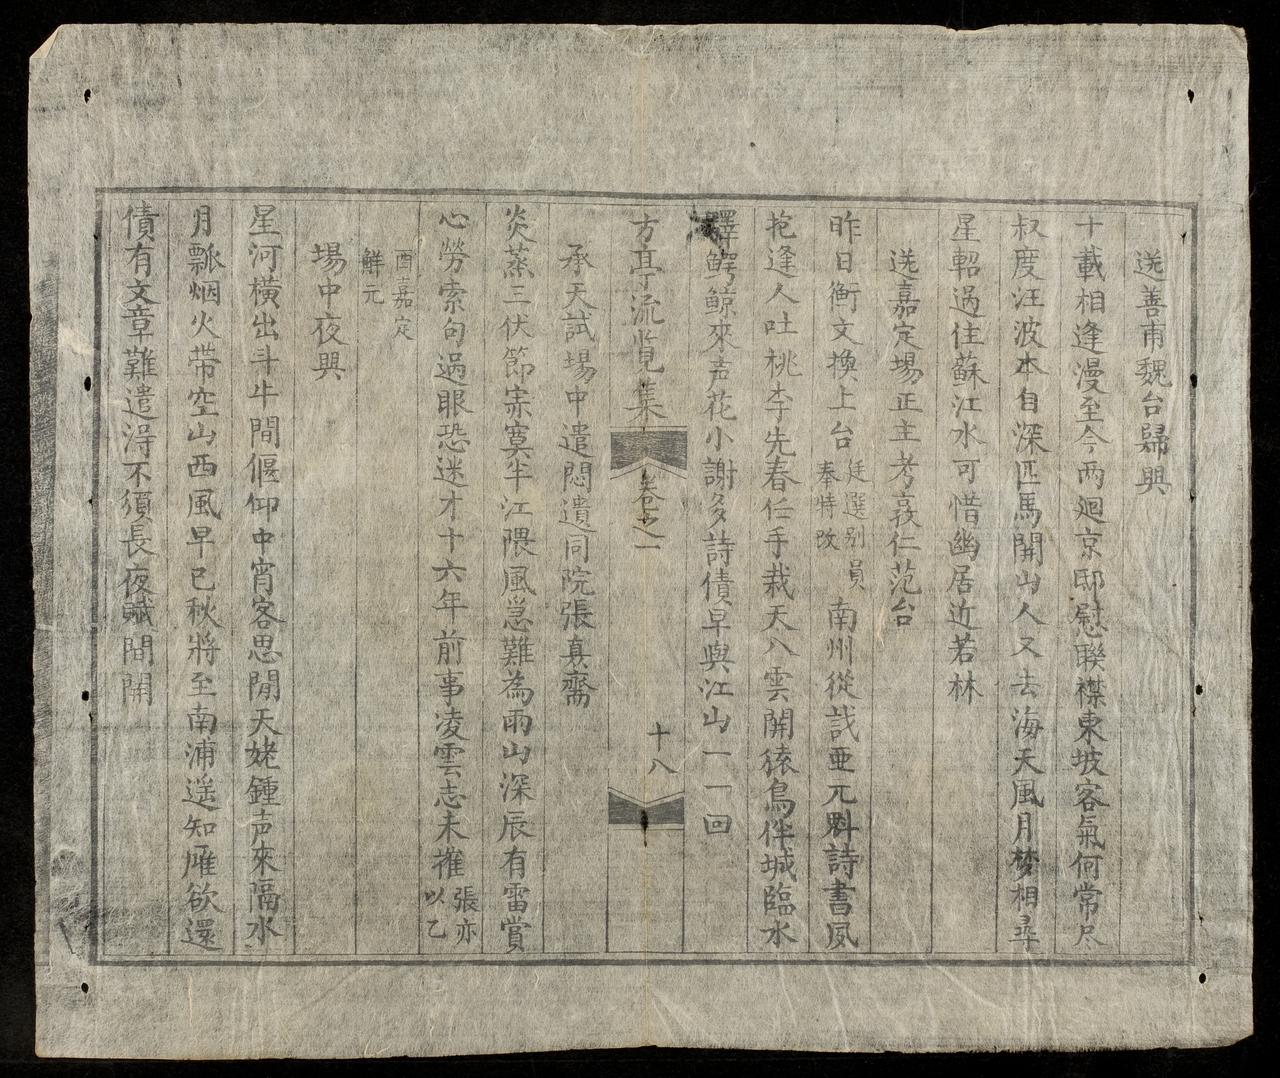 送善甫魏台歸興
十載相逢漫至今兩廻京邸慰聯襟東坡客氣何常尽
叔度汪波本自深匹馬開山人又去海天風月梦相尋
星軺過住蘇江水可惜幽居近若林
送嘉定場正主考敦仁范台
昨日衡文換上台廷選别員奉特改南州從戠亜元魁詩書夙
抱逢人吐桃李先春任手栽天八雲開猿鳥伴城臨水
驛鰐鯨來声花小謝多詩債早與江山一一回
方亭流覧集 卷之一 十八
承天試場中遣悶遺同院張真齋
炎蒸三伏節寔寞半江隈風急難為雨山深辰有雷賞
心勞索句過眼恐迷才十六年前事凌雲志未摧張亦以乙
酉嘉定解元
場中夜興
星河橫出斗牛間偃仰中宵客思閒天姥鍾声來隔水
月瓢烟火带空山西風早已秋將至南浦遥知雁欲還
債有文章難遣淂不須長夜賦間開